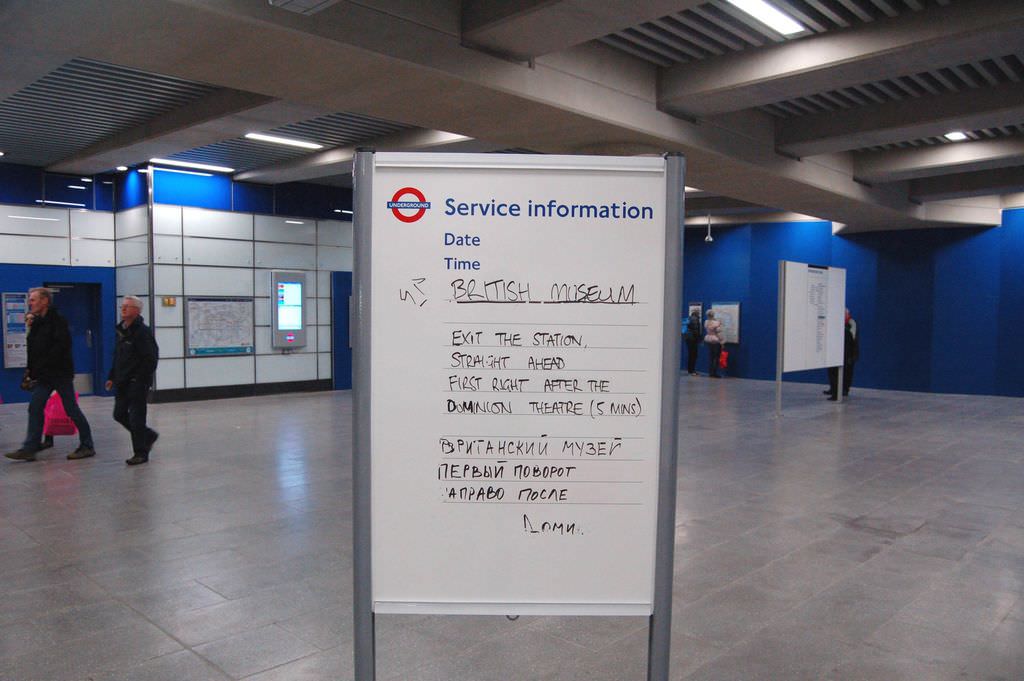 UNDERGROUND
Service information
Date
Time
BRITISH MUSEUM
EXIT THE STATION,
STRAIGHT AHEAD
FIRST RIGHT AFTER THE
DOMINION THEATRE (5 MINS)
БРИТАНСКИЙ МУЗЕЙ
ПЕРВЫЙ ПОВОРОТ
АПРАВО ПОСЛЕ
Доми..